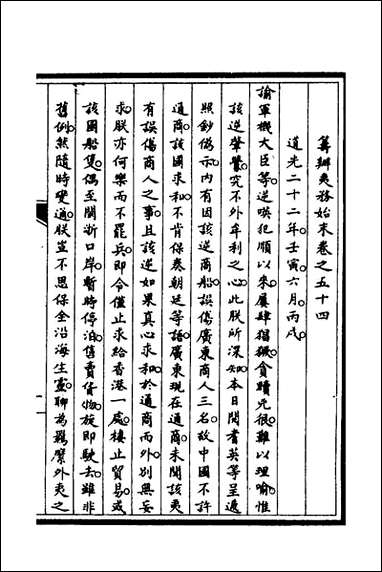 籌辦夷務始末卷之五十四
道光二十二年壬寅六月丙戌
諭軍機大臣等逆㗸犯順以來屢肆猖獗貪黷兇狠難以理喻惟
該逆肇釁究不外牟利之心此朕所深知本日閱耆英等呈遞
照鈔偽示內有因該逆商船誤傷廣東商人三名故中國不許
通商該國求和不肯保奏朝廷等語廣東現在通商未聞該夷
有誤傷商人之事且該逆如果真心求和於通商而外別無妄
求朕亦何樂而不罷兵即令僅止求給香港一處棲止貿易或
該國船隻偶至閩浙口岸暫時停泊售賣貨物旋即駛去雖非
舊例然隨時變通朕豈不思保全沿海生靈聊為羈縻外夷之